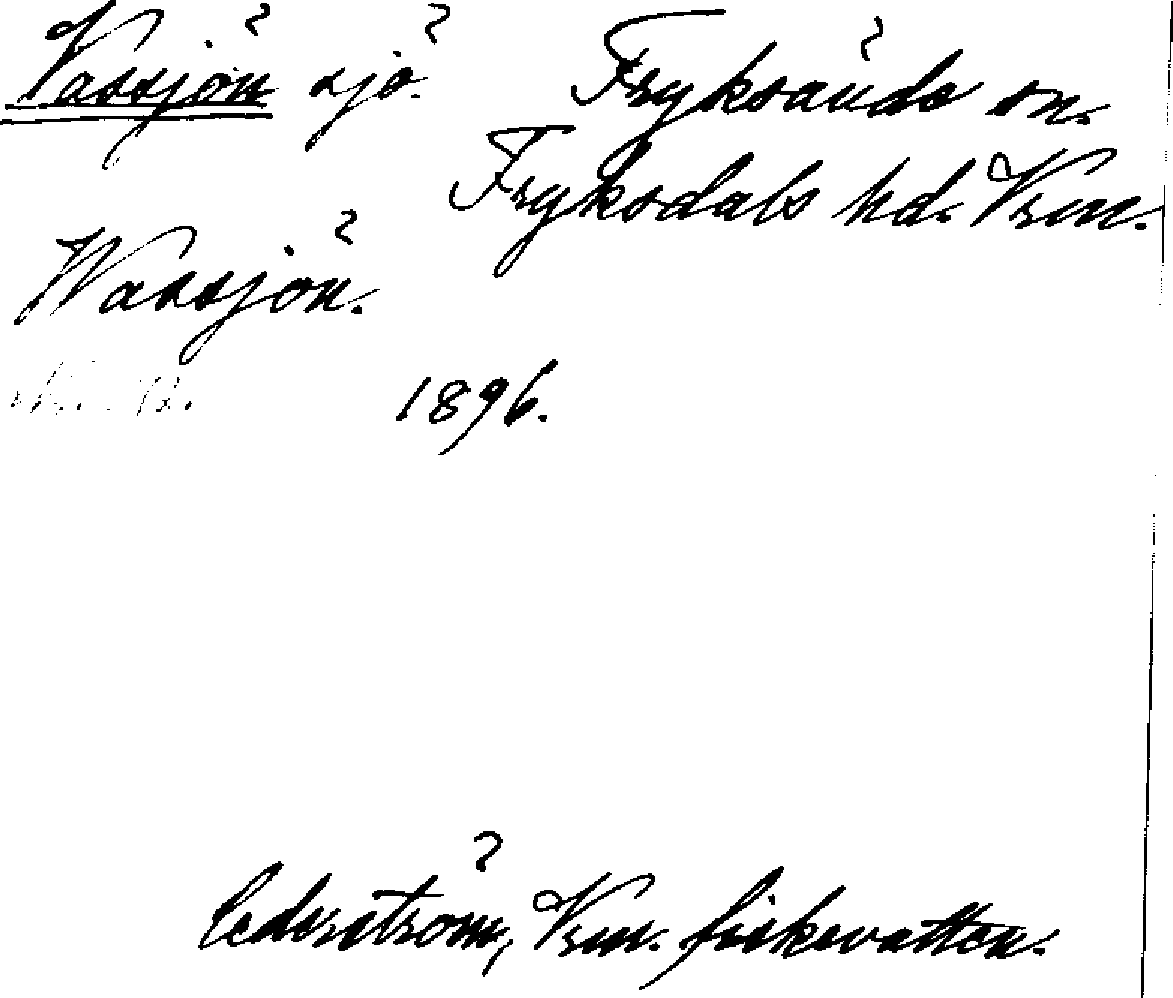 Vassjön sjö. Fryksände sn.
Fryksdals hd. Vrm.
Wassjön.
1896.
Cederström, Vrm. fiskevatten.